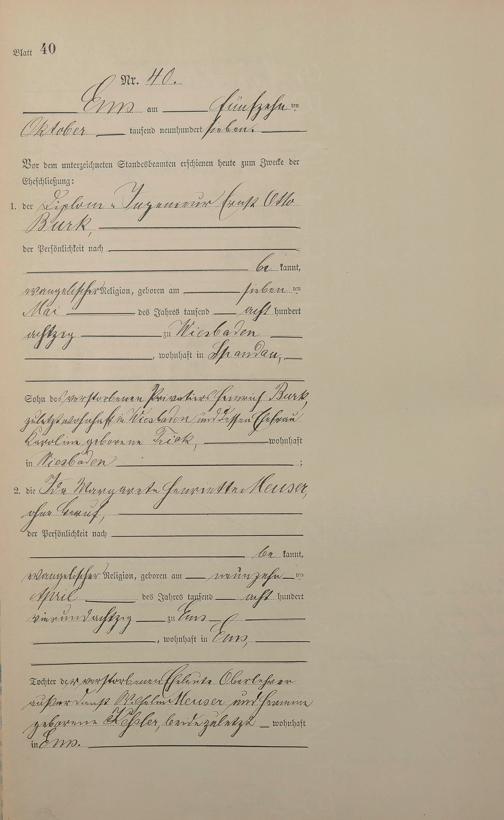 Blatt 40
Nr. 40.
Ems am fünfzehnten
Oktober tausend neunhundert sieben.
Vor dem unterzeichneten Standesbeamten erschienen heute zum Zwecke der
Eheschließung:
1. der Diplom-Ingenieur Ernst Otto
Burk,
der Persönlichkeit nach
be kannt,
evangelischer Religion, geboren am sieben ten
Mai des Jahres tausend acht hundert
achtzig zu Wiesbaden
, wohnhaft in Spandau,
Sohn des verstorbenen Privatiers Heinrich Burk,
zuletzt wohnhaft in Wiesbaden und dessen Ehefrau
Karoline geborene wohnhaft
in Wiesbaden ;
2. die Ida Margarete Henriette Meuser,
ohne Beruf,
der Persönlichkeit nach
be kannt,
evangelischer Religion, geboren am neunzehn ten
April des Jahres tausend acht hundert
vierundachtzig zu Ems
, wohnhaft in Ems,
Tochter der verstorbenen Eheleute Oberlehrer
außer Dienst Wilhelm Meuser und
geborene beide zuletzt wohnhaft
in Ems.